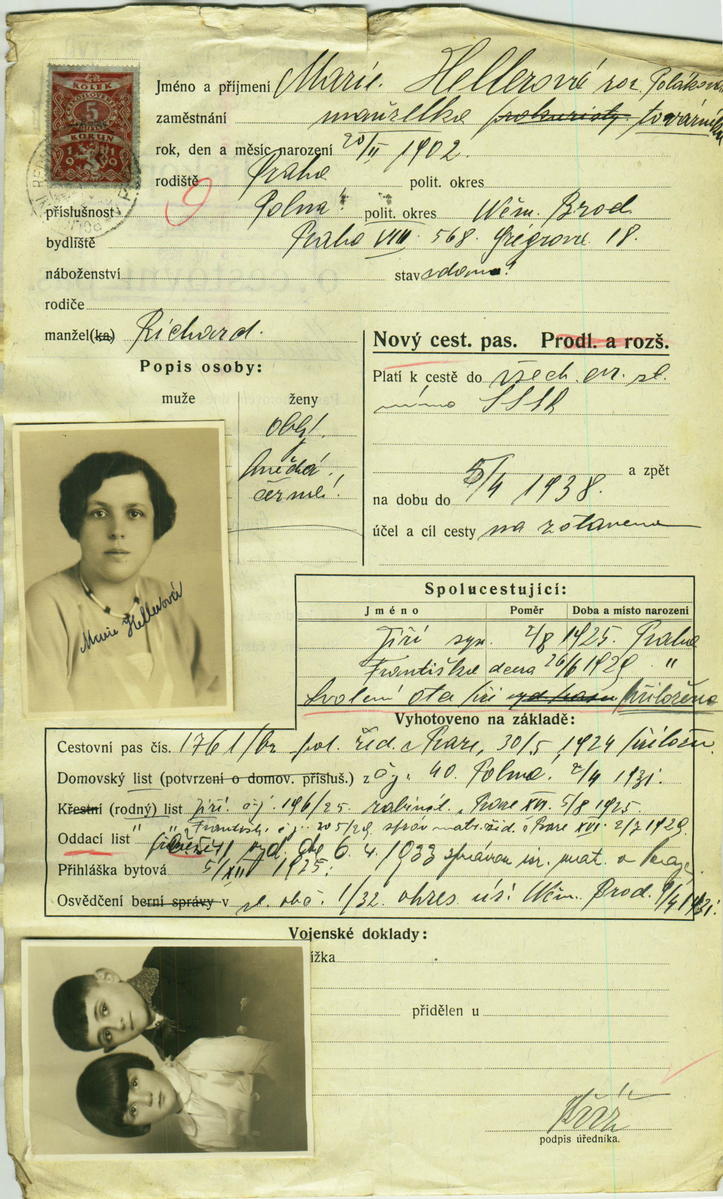 KOLEK
5
KORUN
1919
Jméno a příjmení Marie Hellerová roz. Poláková
zaměstnání manželka prokuristy továrníka
rok, den a měsíc narození 20/II 1902.
rodiště Praha polit. okres
9
příslušnost Polná polit. okres Něm. Brod
bydliště Praha VII 568. Grégrova 18.
náboženství stav
rodiče
manžel(ka) Richard.
Popis osoby:
muže ženy
obl.
hnědá.
černé!
Nový cest. pas. Prodl. a rozš.
Platí k cestě do všech ev. st.
mimo SSSR
a zpět
na dobu do 5/4 1938.
účel a cíl cesty na zotavenou
Marie Hellerová
Spolucestující:
Jméno Poměr Doba a místo narození
Jiří syn 2/8 1925. Praha
Františka dcera 26/6 1929 "
Svolení otce přiloženo
Vyhotoveno na základě:
Cestovní pas čís. 1761/ pol. řed. v Praze, 30/5 1924
Domovský list (potvrzení o domov. přísluš.) z čj. 40. Polná, 2/4 1931.
Křestní (rodný) list Jiří čj. 196/25. rabinát v Praze XVI. 5/8 1925.
" " Františka čj. 205/29. správ. matr. žid. v Praze 2/7 1929.
Oddací list 41 dne 6. 4. 1933 správou isr. mat. v Praze
Přihláška bytová 5/XII 1925.
Osvědčení berní správy v st. obč. 1/32. okres. úř. Něm. Brod 9/4 1931.
Vojenské doklady:
ížka
přidělen u
podpis úředníka.